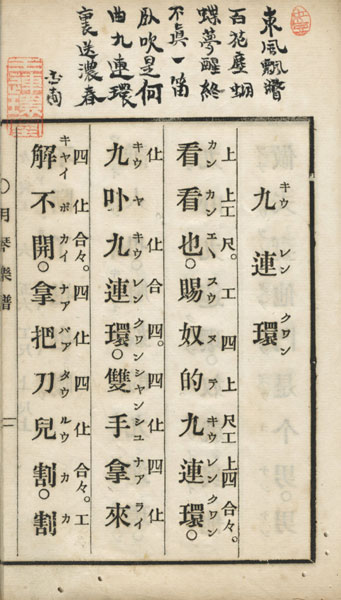 東風飄瞥
百花塵蝴
蝶夢醒終
不真一笛
臥吹是何
曲九連環
裏送濃春
九連環
キウ レン クワン
上 上工 尺。 工 四 上 尺工 上四 合々。
看看也。賜奴的九連環。
カン カン エヽ スウ ヌ テ キウ レン クワン
仩 仩 合 四。 四 仩 四 仩
九卟九連環。雙手拿來
キウ ヤ キウ レン クワン シヤン シユ ナア ライ
四 仩 合々。 四 仩 四 仩 合々。 工
解不開。拿把刀兒割。割
キヤイ ポ カイ ナア パア タウ ルウ カ カ
〇月琴樂譜